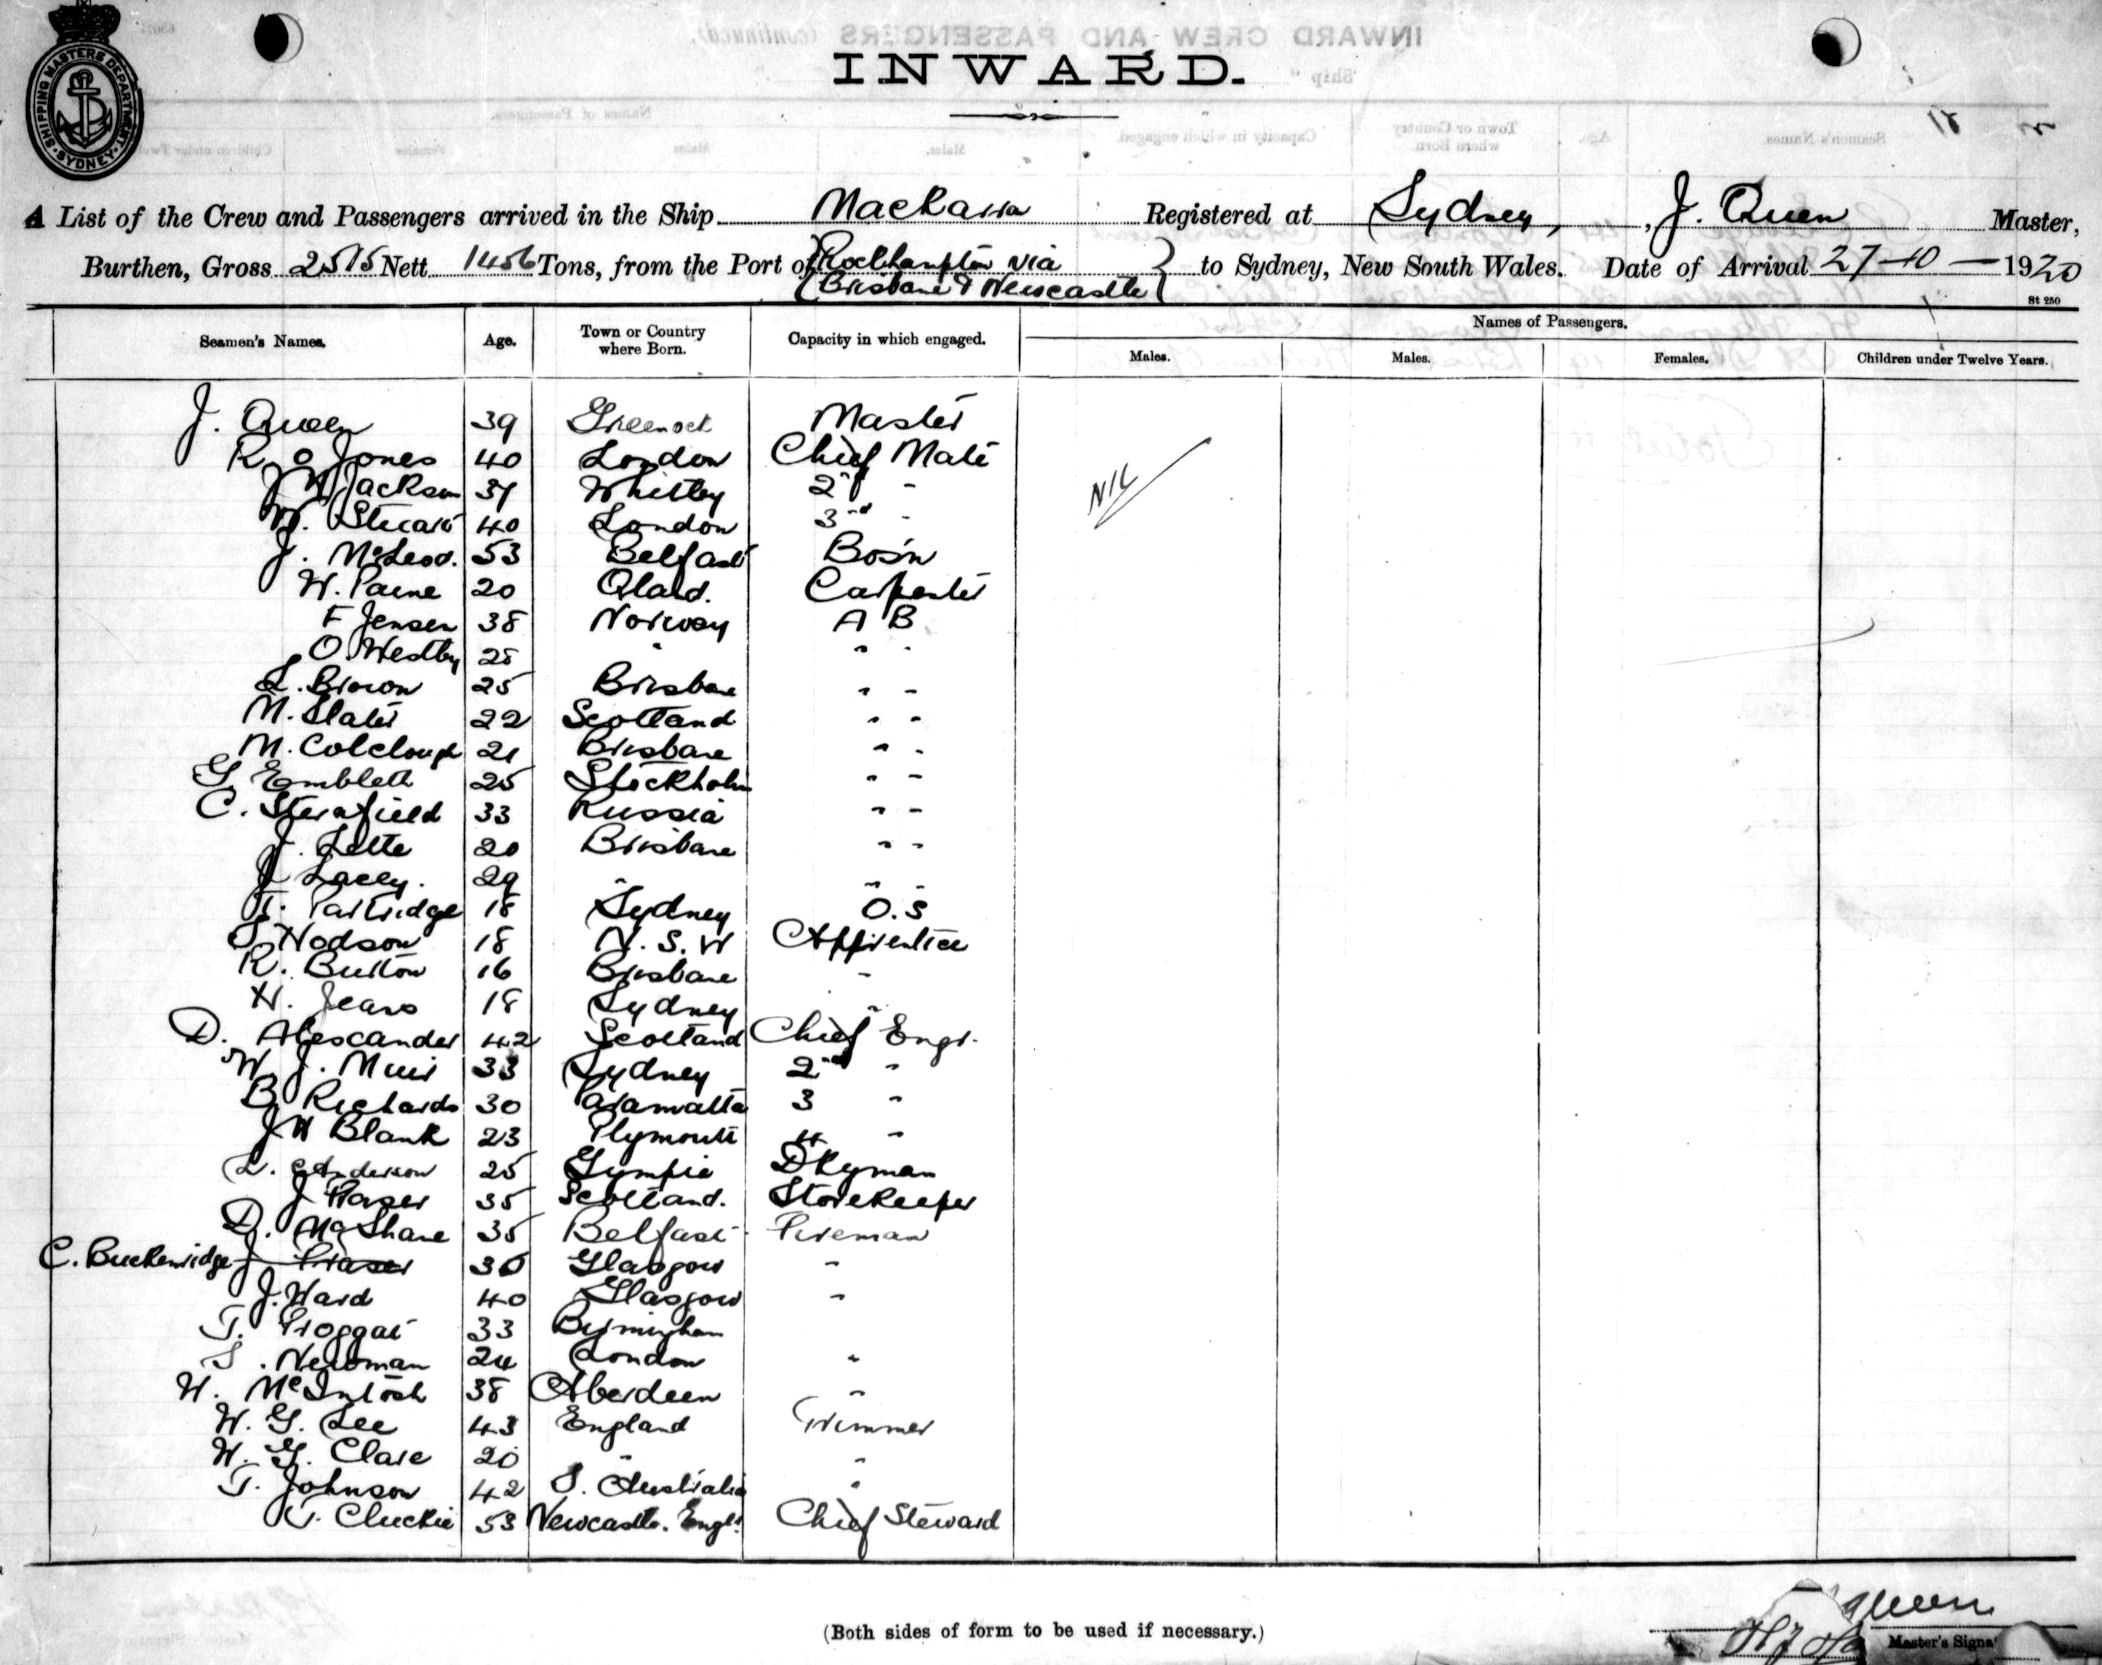 SHIPPING MASTERS DEPARTMENT SYDNEY
INWARD.
A List of the Crew and Passengers arrived in the Ship Mackassa Registered at Sydney, J. Queen Master,
Burthen, Gross 2515 Nett 1456 Tons, from the Port of Rockhampton via Brisbane & Newcastle to Sydney, New South Wales. Date of Arrival 27-10-1920
St 250
Seamen's Names. Age. Town or Country where Born. Capacity in which engaged. Names of Passengers.
Males. Males. Females. Children under Twelve Years.
J. Queen 39 Greenock Master
R. O Jones 40 London Chief Mate
J W Jackson 37 Whitby 2nd "
W. Stuart 40 London 3rd "
NIL
J. McLeod. 53 Belfast Bos'n
W. Paine 20 Qland. Carpenter
F Jensen 38 Norway A B
O. Westby 28 " " "
L. Brown 25 Brisbane " "
M. Slater 22 Scotland " "
M. Colclough 21 Brisbane " "
G. Embleth 25 Stockholm " "
C. 33 Russia " "
J. Lette 20 Brisbane " "
J Lacey. 29 " " "
T. Partridge 18 Sydney O.S
S Hodson 18 N.S.W Apprentice
R. Button 16 Brisbane "
H. Jeans 18 Sydney "
D. Alexander 42 Scotland Chief Engr.
W J. Muir 33 Sydney 2nd "
B Richards 30 Paramatta 3 "
J W Blank 23 Plymouth 4 "
L. Anderson 25 Gympie Dkyman
J Fraser 35 Scotland. Storekeeper
D. McShane 35 Belfast Fireman
C. Buckenridge J Fraser 36 Glasgow "
J. Ward 40 Glasgow "
T. Froggat 33 Birmingham
S. Newman 24 London "
W. McIntosh 38 Aberdeen "
W. G. Lee 43 England Trimmer
W. G. Clare 20 " "
T. Johnson 42 S. Australia "
T. Cluckie 53 Newcastle. Engl. Chief Steward
(Both sides of form to be used if necessary.)
Queen
Master's Signa